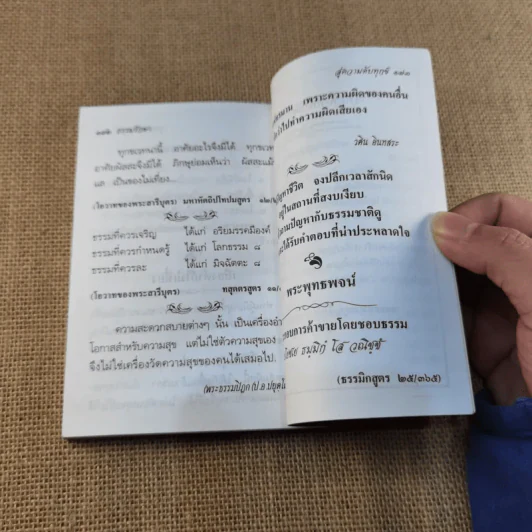 ๑๗๒ ธรรมรักษา
ทุกขเวทนานี้ อาศัยอะไรจึงมีได้ ทุกขเวท
อาศัยผัสสะจึงมีได้ ภิกษุย่อมเห็นว่า ผัสสะแม้
แล เป็นของไม่เที่ยง...
(โอวาทของพระสารีบุตร) มหาหัตถิปโทปมสูตร
ธรรมที่ควรเจริญ ได้แก่ อริยมรรคมีองค์
ธรรมที่ควรกำหนดรู้ ได้แก่ โลกธรรม ๘
ธรรมที่ควรละ ได้แก่ มิจฉัตตะ ๘
(โอวาทของพระสารีบุตร) ทสุตตรสูตร ๑๑/
ความสะดวกสบายต่างๆ นั้น เป็นเครื่องอำ
โอกาสสำหรับความสุข แต่ไม่ใช่ตัวความสุขเอง
จึงไม่ใช่เครื่องวัดความสุขของคนได้เสมอไป
(พระธรรมปิฎก (ป.อ.ปยุตโ
สู่ความดับทุกข์ ๑๗๓
เพราะความผิดของคนอื่น
ไปทำความผิดเสียเอง
วศิน อินทสระ
ปัญหาชีวิต จงปลีกเวลาสักนิด
อยู่ในสถานที่สงบเงียบ
ถามปัญหากับธรรมชาติดู
จะได้รับคำตอบที่น่าประหลาดใจ
พระพุทธพจน์
กอบการค้าขายโดยชอบธรรม
ธมฺมิกํ โส วณิชฺชํ
(ธรรมิกสูตร ๒๕/๓๖๕)